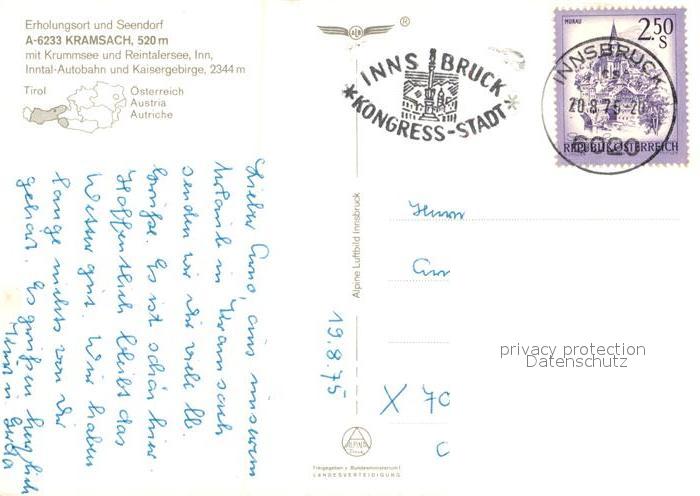 Erholungsort und Seendorf
A-6233 KRAMSACH, 520 m
mit Krummsee und Reintalersee, Inn,
Inntal-Autobahn und Kaisergebirge, 2344 m
Tirol
Österreich
Austria
Autriche
®
INNSBRUCK
*KONGRESS-STADT*
MURAU
2.50
S
REPUBLIK ÖSTERREICH
INNSBRUCK
20.8.75-20
6020
Lieber Arno, aus unserem
Urlaub in Kramsach
senden wir dir viele lb.
Grüße. Es ist schön hier.
Hoffentlich bleibt das
Wetter gut. Wir haben
lange nichts von dir
gehört. Es grüßen herzlich
u. Gerda
19.8.75
Alpine Luftbild Innsbruck
Herrn
X 70
ALPINE
Freigegeben v. Bundesministerium f.
LANDESVERTEIDIGUNG
privacy protection
Datenschutz